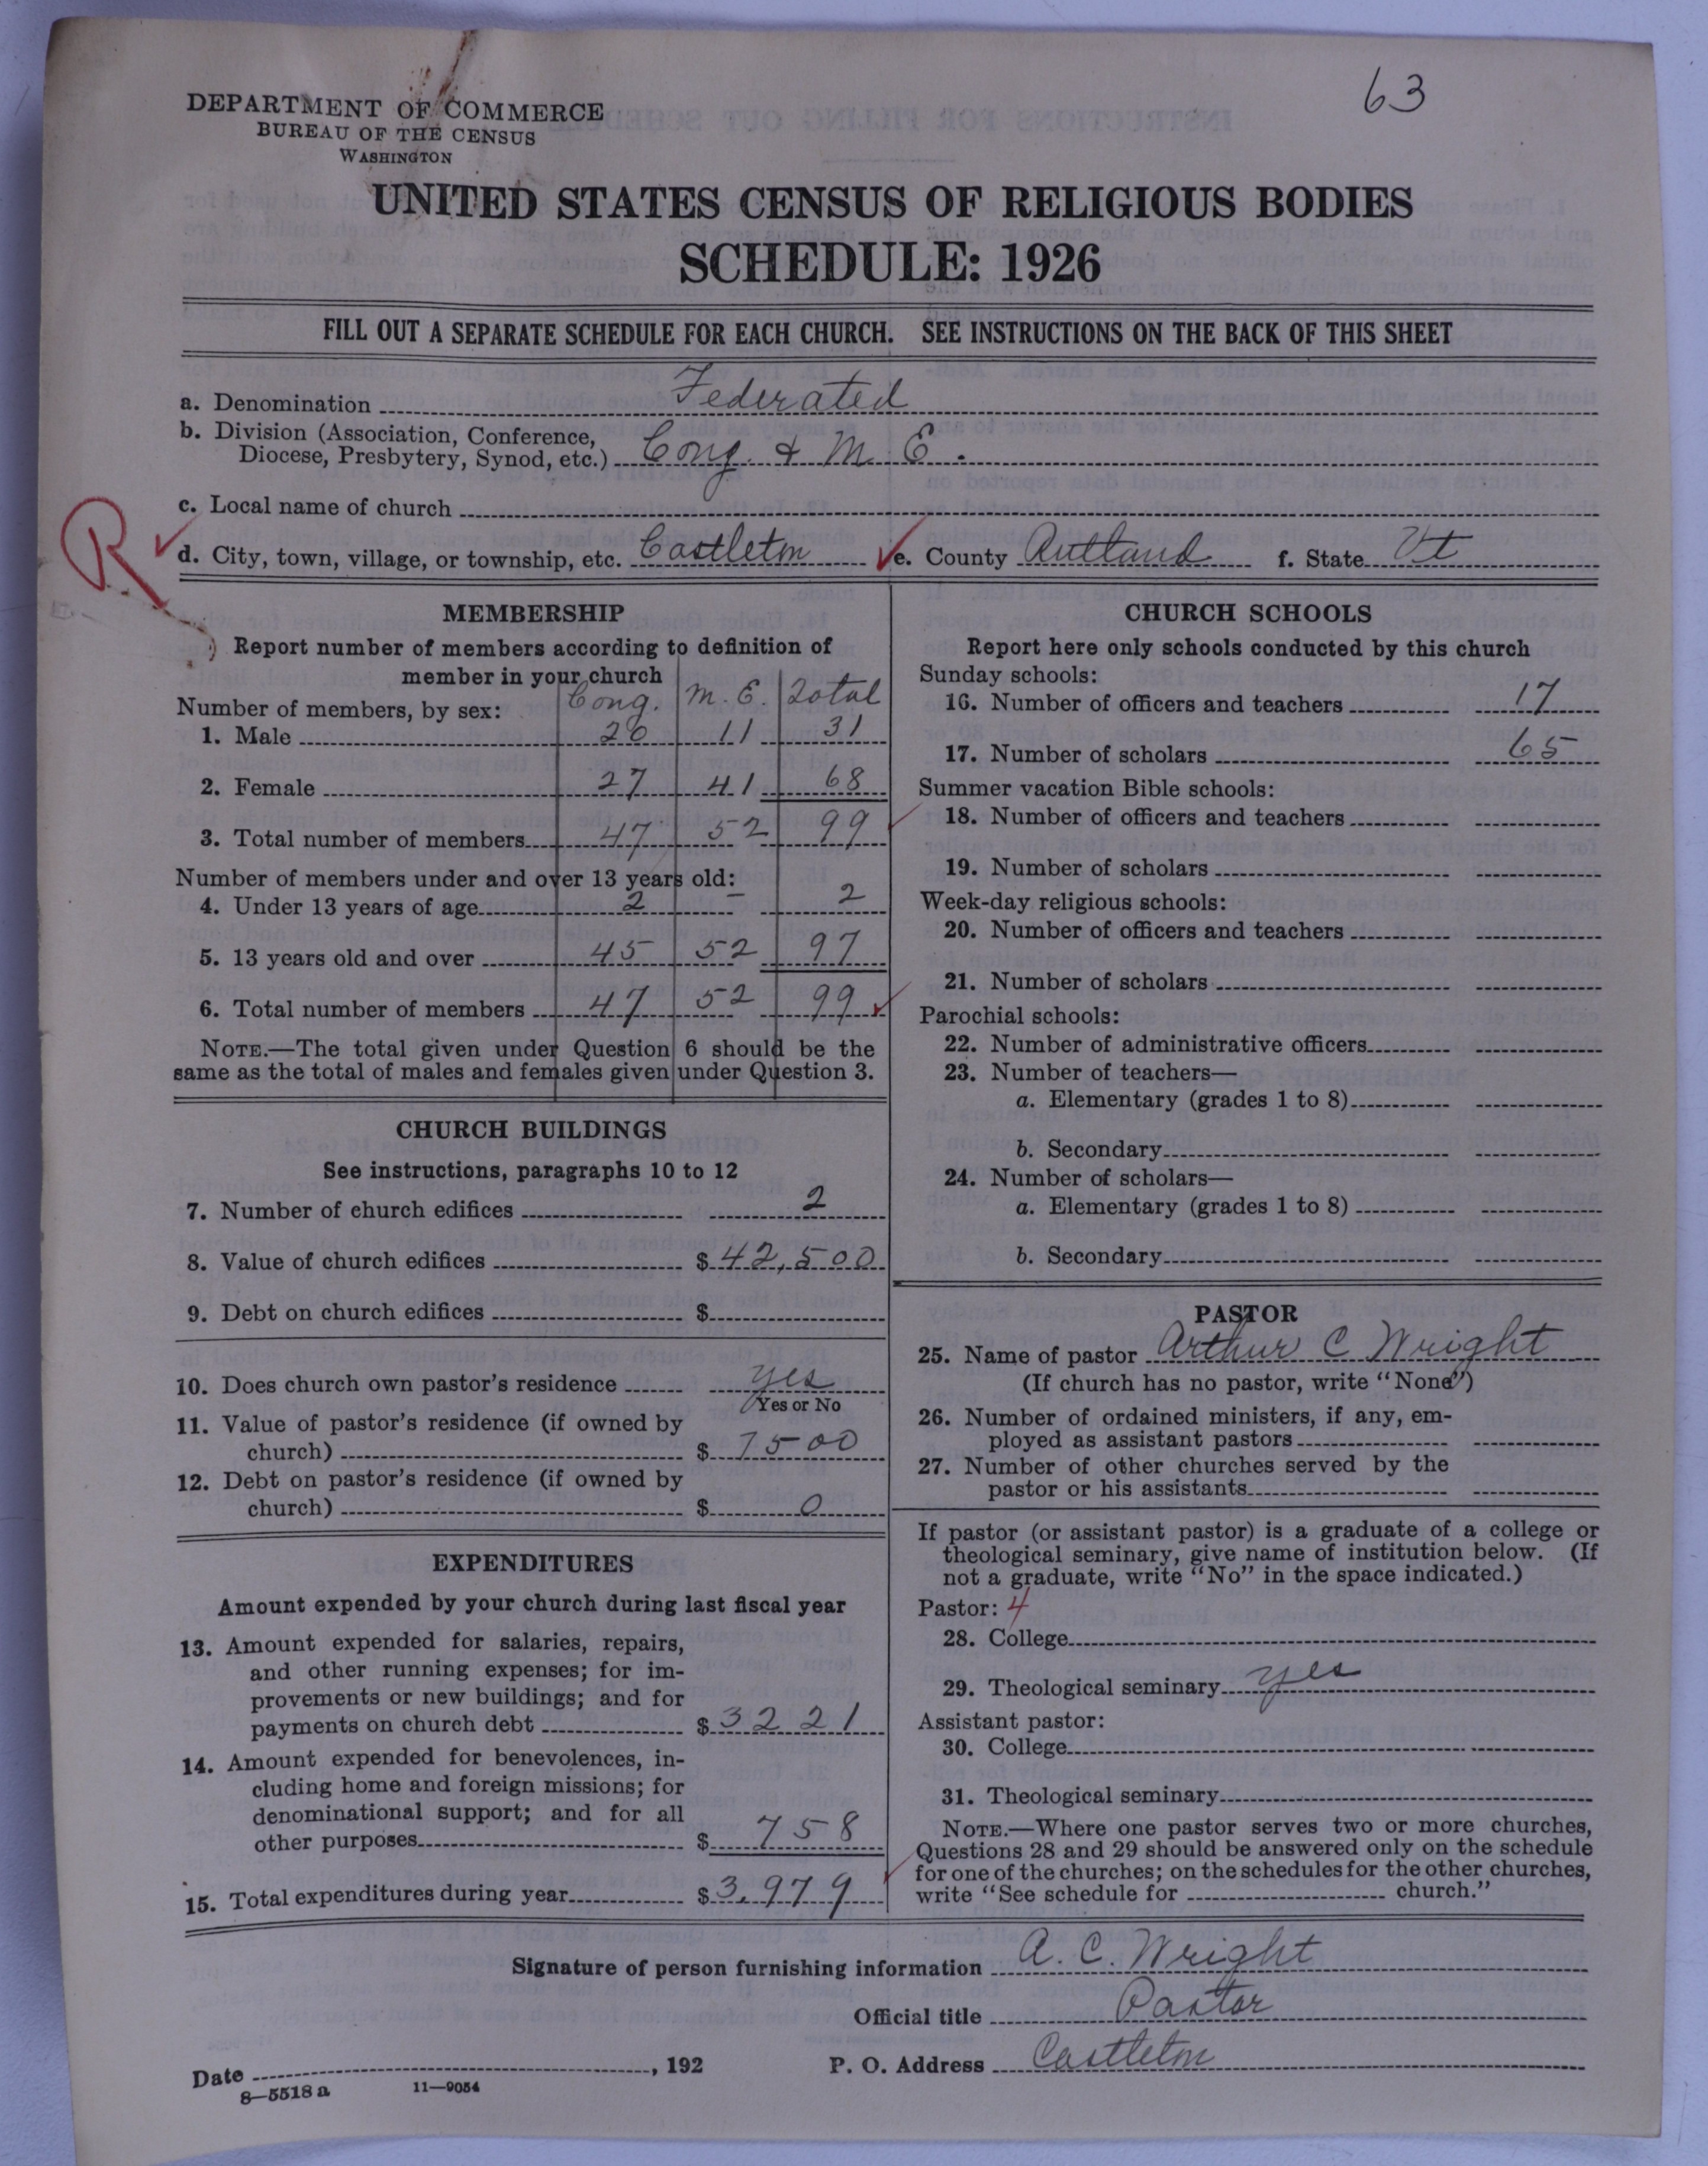 63
DEPARTMENT OF COMMERCE
BUREAU OF THE CENSUS
WASHINGTON
UNITED STATES CENSUS OF RELIGIOUS BODIES
SCHEDULE: 1926
FILL OUT A SEPARATE SCHEDULE FOR EACH CHURCH. SEE INSTRUCTIONS ON THE BACK OF THIS SHEET
a. Denomination Federated
b. Division (Association, Conference,
Diocese, Presbytery, Synod, etc.) Cong. & M E.
c. Local name of church
R
d. City, town, village, or township, etc. Castleton e. County Rutland f. State Vt
MEMBERSHIP
Report number of members according to definition of
member in your church
Number of members, by sex: Cong. M. E. Total
1. Male 20 11 31
2. Female 27 41 68
3. Total number of members 47 52 99
Number of members under and over 13 years old:
4. Under 13 years of age 2 – 2
5. 13 years old and over 45 52 97
6. Total number of members 47 52 99
NOTE.—The total given under Question 6 should be the
same as the total of males and females given under Question 3.
CHURCH BUILDINGS
See instructions, paragraphs 10 to 12
7. Number of church edifices 2
8. Value of church edifices $ 42,500
9. Debt on church edifices $
10. Does church own pastor's residence yes
Yes or No
11. Value of pastor's residence (if owned by
church) $ 7500
12. Debt on pastor's residence (if owned by
church) $ 0
EXPENDITURES
Amount expended by your church during last fiscal year
13. Amount expended for salaries, repairs,
and other running expenses; for im-
provements or new buildings; and for
payments on church debt $ 3221
14. Amount expended for benevolences, in-
cluding home and foreign missions; for
denominational support; and for all
other purposes $ 758
15. Total expenditures during year $ 3,979
CHURCH SCHOOLS
Report here only schools conducted by this church
Sunday schools:
16. Number of officers and teachers 17
17. Number of scholars 65
Summer vacation Bible schools:
18. Number of officers and teachers
19. Number of scholars
Week-day religious schools:
20. Number of officers and teachers
21. Number of scholars
Parochial schools:
22. Number of administrative officers
23. Number of teachers—
a. Elementary (grades 1 to 8)
b. Secondary
24. Number of scholars—
a. Elementary (grades 1 to 8)
b. Secondary
PASTOR
25. Name of pastor Arthur C Wright
(If church has no pastor, write "None")
26. Number of ordained ministers, if any, em-
ployed as assistant pastors
27. Number of other churches served by the
pastor or his assistants
If pastor (or assistant pastor) is a graduate of a college or
theological seminary, give name of institution below. (If
not a graduate, write "No" in the space indicated.)
Pastor: 4
28. College
29. Theological seminary yes
Assistant pastor:
30. College
31. Theological seminary
NOTE.—Where one pastor serves two or more churches,
Questions 28 and 29 should be answered only on the schedule
for one of the churches; on the schedules for the other churches,
write "See schedule for church."
Signature of person furnishing information A. C. Wright
Official title Pastor
Date , 192 P. O. Address Castleton
8—5518 a 11—9054